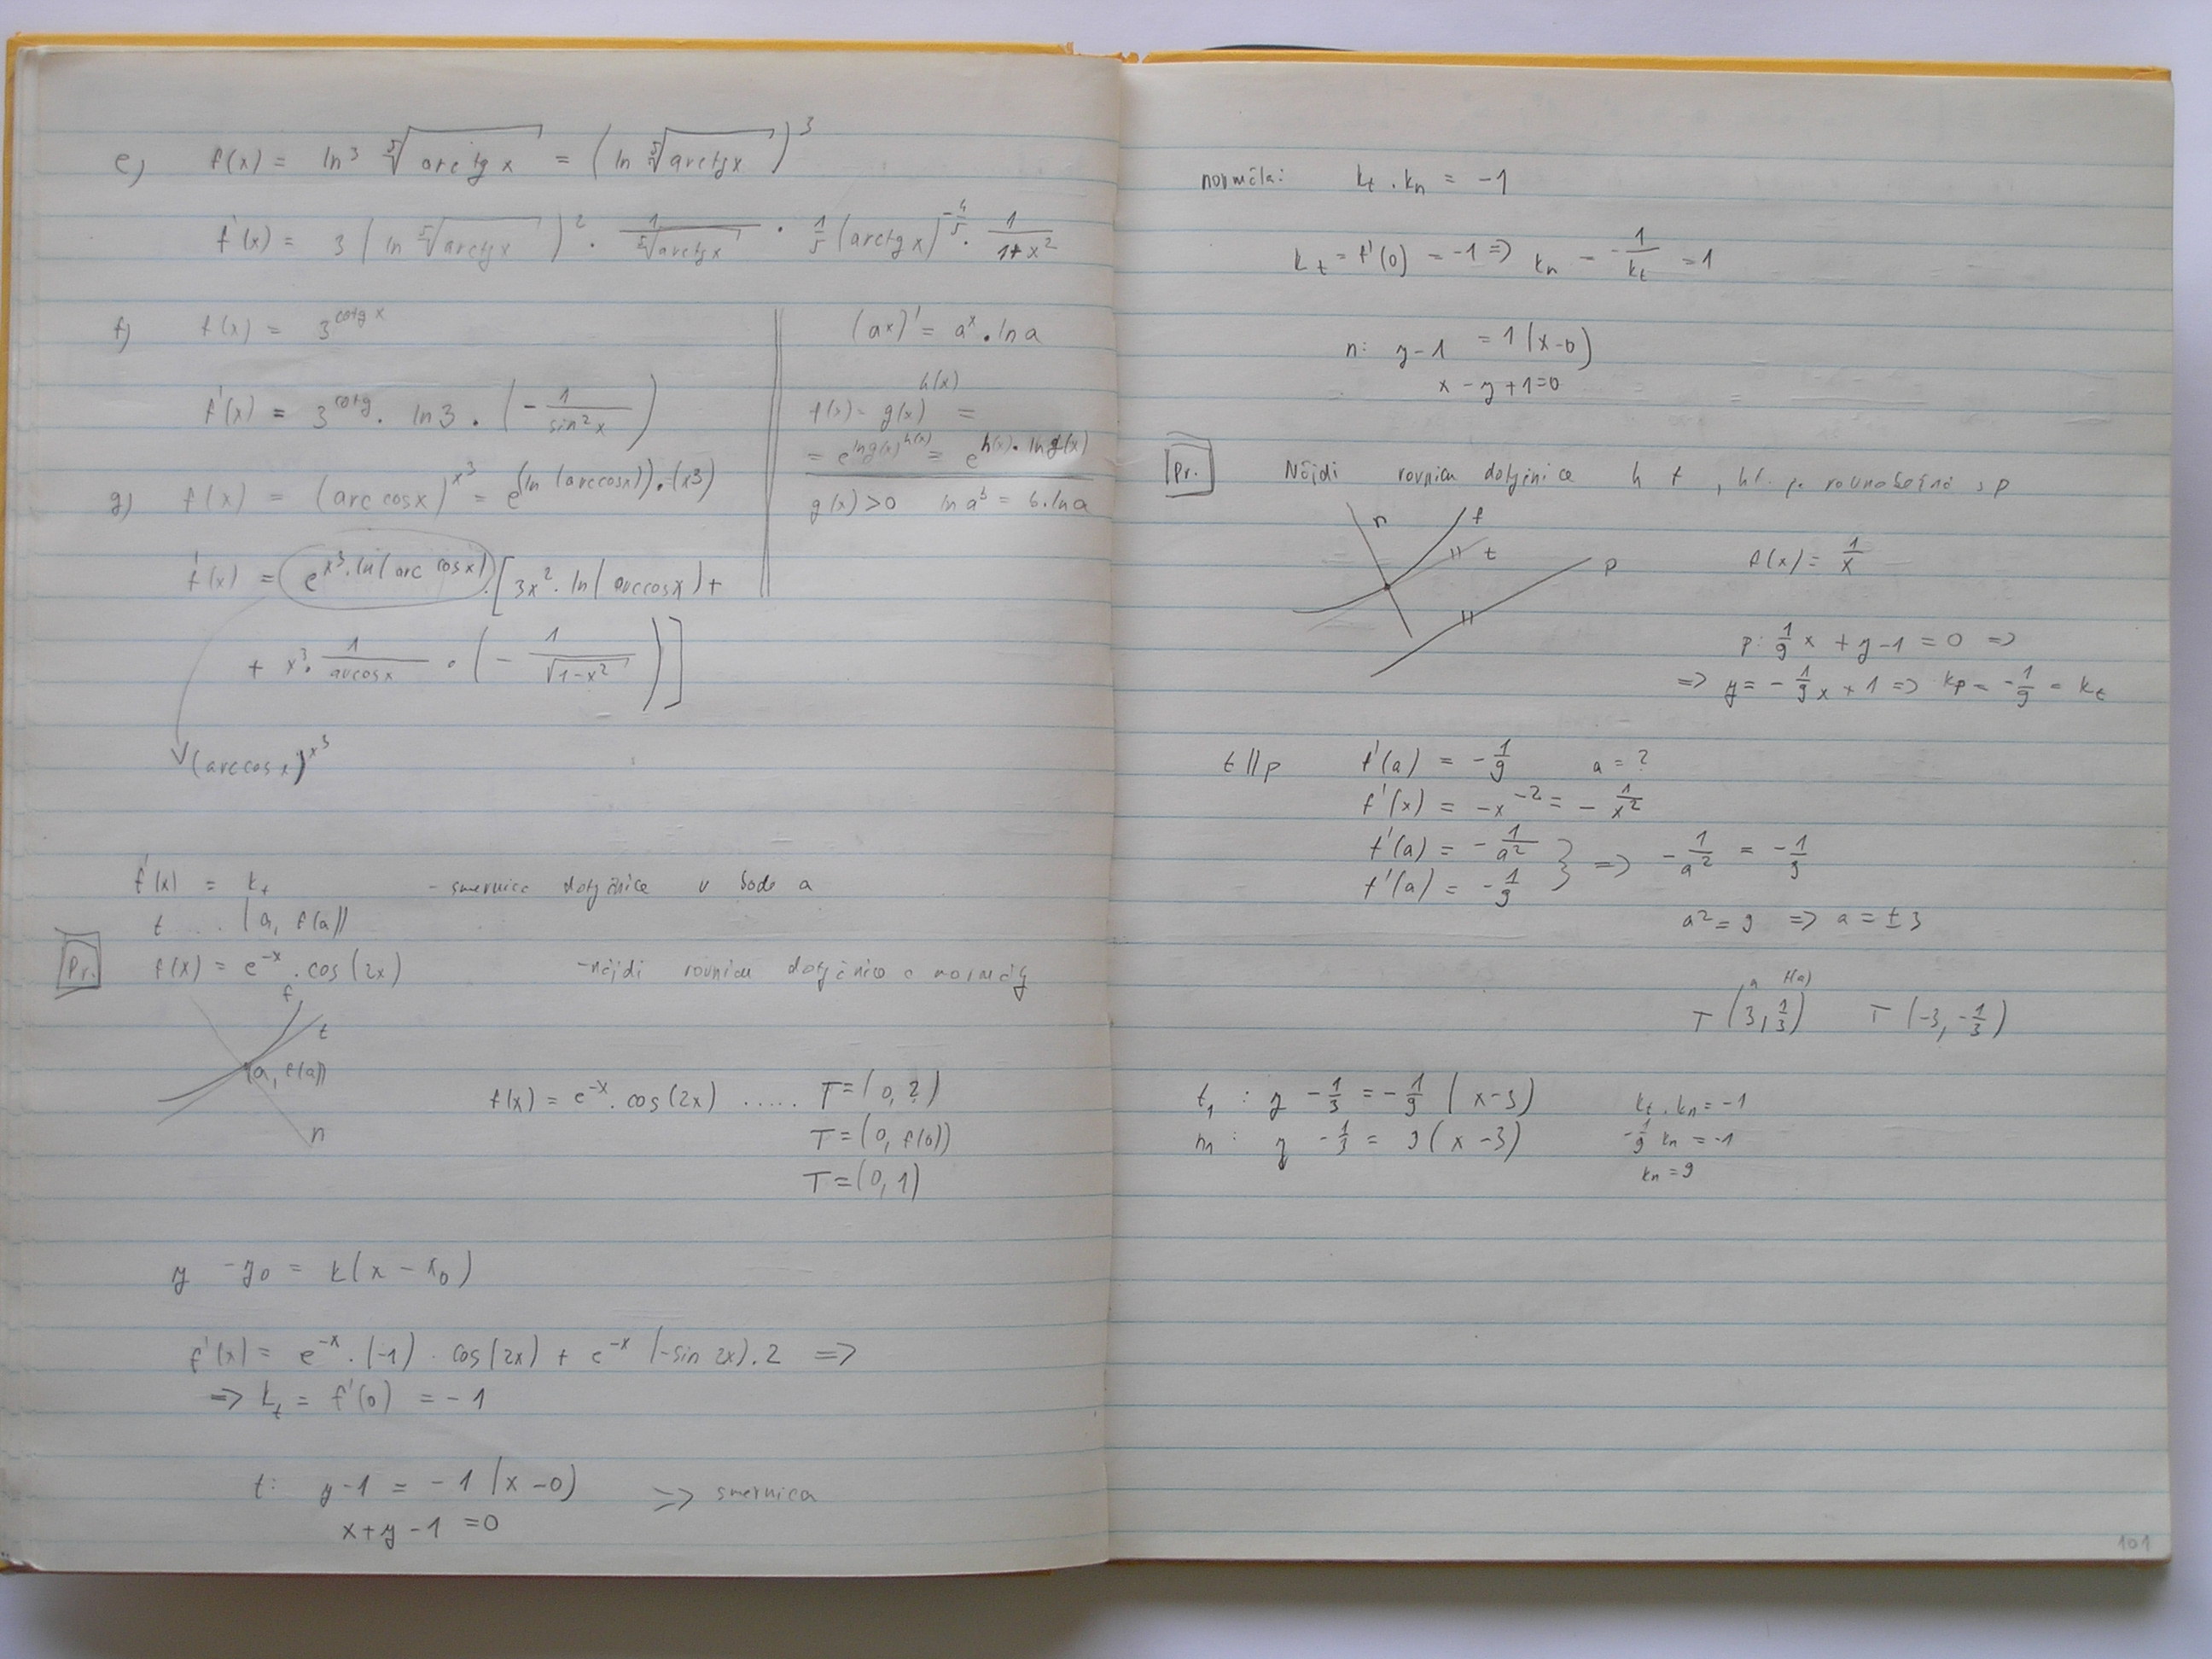 e) f(x) = ln³ ⁵√(arctg x) = (ln ⁵√(arctg x))³
f'(x) = 3 (ln ⁵√(arctg x))² · 1/⁵√(arctg x) · 1/5 (arctg x)^(-4/5) · 1/(1+x²)
f) f(x) = 3^(cotg x)
f'(x) = 3^(cotg) · ln 3 · (- 1/(sin² x))
g) f(x) = (arc cos x)^(x³) = e^((ln (arccos x)) · (x³))
f'(x) = e^(x³ · ln(arc cos x)) · [3x² · ln(arccos x) +
+ x³ · 1/(arcosx) · (- 1/√(1-x²))]
(arccos x)^(x³)
(ax)' = a^x · ln a
f(x) = g(x)^(h(x)) =
= e^(ln g(x)^(h(x))) = e^(h(x) · ln g(x))
g(x) > 0 ln a^b = b · ln a
f'(x) = k_t - smernica dotyčnice v bode a
t .... (a, f(a))
Pr. f(x) = e^(-x) · cos(2x) - nájdi rovnicu dotyčnice a normály
f
t
(a, f(a))
n
f(x) = e^(-x) · cos(2x) ..... T = (0, ?)
T = (0, f(0))
T = (0, 1)
y - y₀ = k(x - x₀)
f'(x) = e^(-x) · (-1) · cos(2x) + e^(-x) (-sin 2x) · 2 =>
=> k_t = f'(0) = -1
t: y - 1 = -1 (x - 0) => smernica
x + y - 1 = 0
normála: k_t . k_n = -1
k_t = f'(0) = -1 => k_n = - 1/k_t = 1
n: y - 1 = 1(x - 0)
x - y + 1 = 0
Pr. Nájdi rovnicu dotyčnice k f, kt. je rovnobežná s p
n f
t
p
f(x) = 1/x
p: 1/9 x + y - 1 = 0 =>
=> y = - 1/9 x + 1 => k_p = - 1/9 = k_t
t || p f'(a) = - 1/9 a = ?
f'(x) = -x^(-2) = - 1/x²
f'(a) = - 1/a² } => - 1/a² = - 1/9
f'(a) = - 1/9
a² = 9 => a = ± 3
a f(a)
T (3, 1/3) T (-3, - 1/3)
t₁ : y - 1/3 = - 1/9 (x - 3) k_t . k_n = -1
n₁ : y - 1/3 = 9 (x - 3) - 1/9 k_n = -1
k_n = 9
101